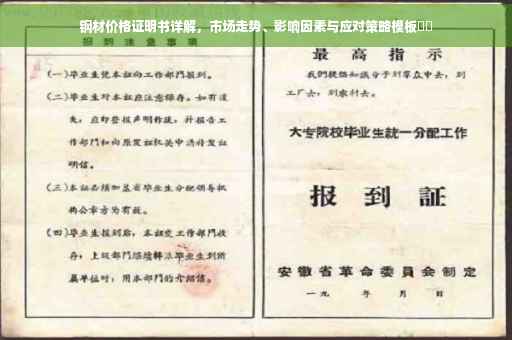 钢材价格证明书详解，市场走势、影响因素与应对策略模板
报到注意事项
(一)毕业生凭本证向工作部门报到。
(二)毕业生对本证应注意保存。如有遗
失，应即登报声明作废，并报告工
作部门和向原发证机关申请补发证
明信。
(三)本证必须加盖省毕业生分配领导机
构公章方为有效。
(四)毕业生报到后，本证交工作部门收
存；上级部门继续转派毕业生到所
属单位时，用本部门的介绍信。
最高指示
我们提倡知识分子到群众中去，到
工厂去，到农村去。
大专院校毕业生统一分配工作
报到证
安徽省革命委员会制定
一九 年 月 日